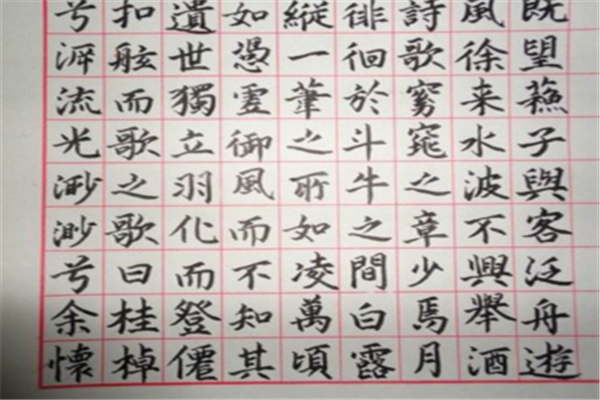 既望蘇子與客泛舟遊
風徐来水波不興舉酒
詩歌窈窕之章少焉月
徘徊於斗牛之間白露
縱一葦之所如凌萬頃
如憑虛御風而不知其
遺世獨立羽化而登僊
扣舷而歌之歌曰桂棹
兮泝流光渺渺兮余懷